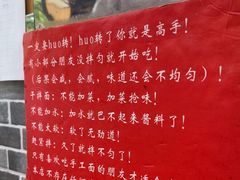 一定要huo转！huo转了你就是高手！
有小部分朋友没拌匀就开始吃！
（后果会咸，会腻，味道还会不均匀）！
干拌面：不能加菜，加菜抢味！
不能加水：加水就巴不起来酱料了！
不能太软：软了无劲道！
赶紧拌：久了就拌不匀了！
只有喜欢吃手工面的朋友才适合
本店不存在任